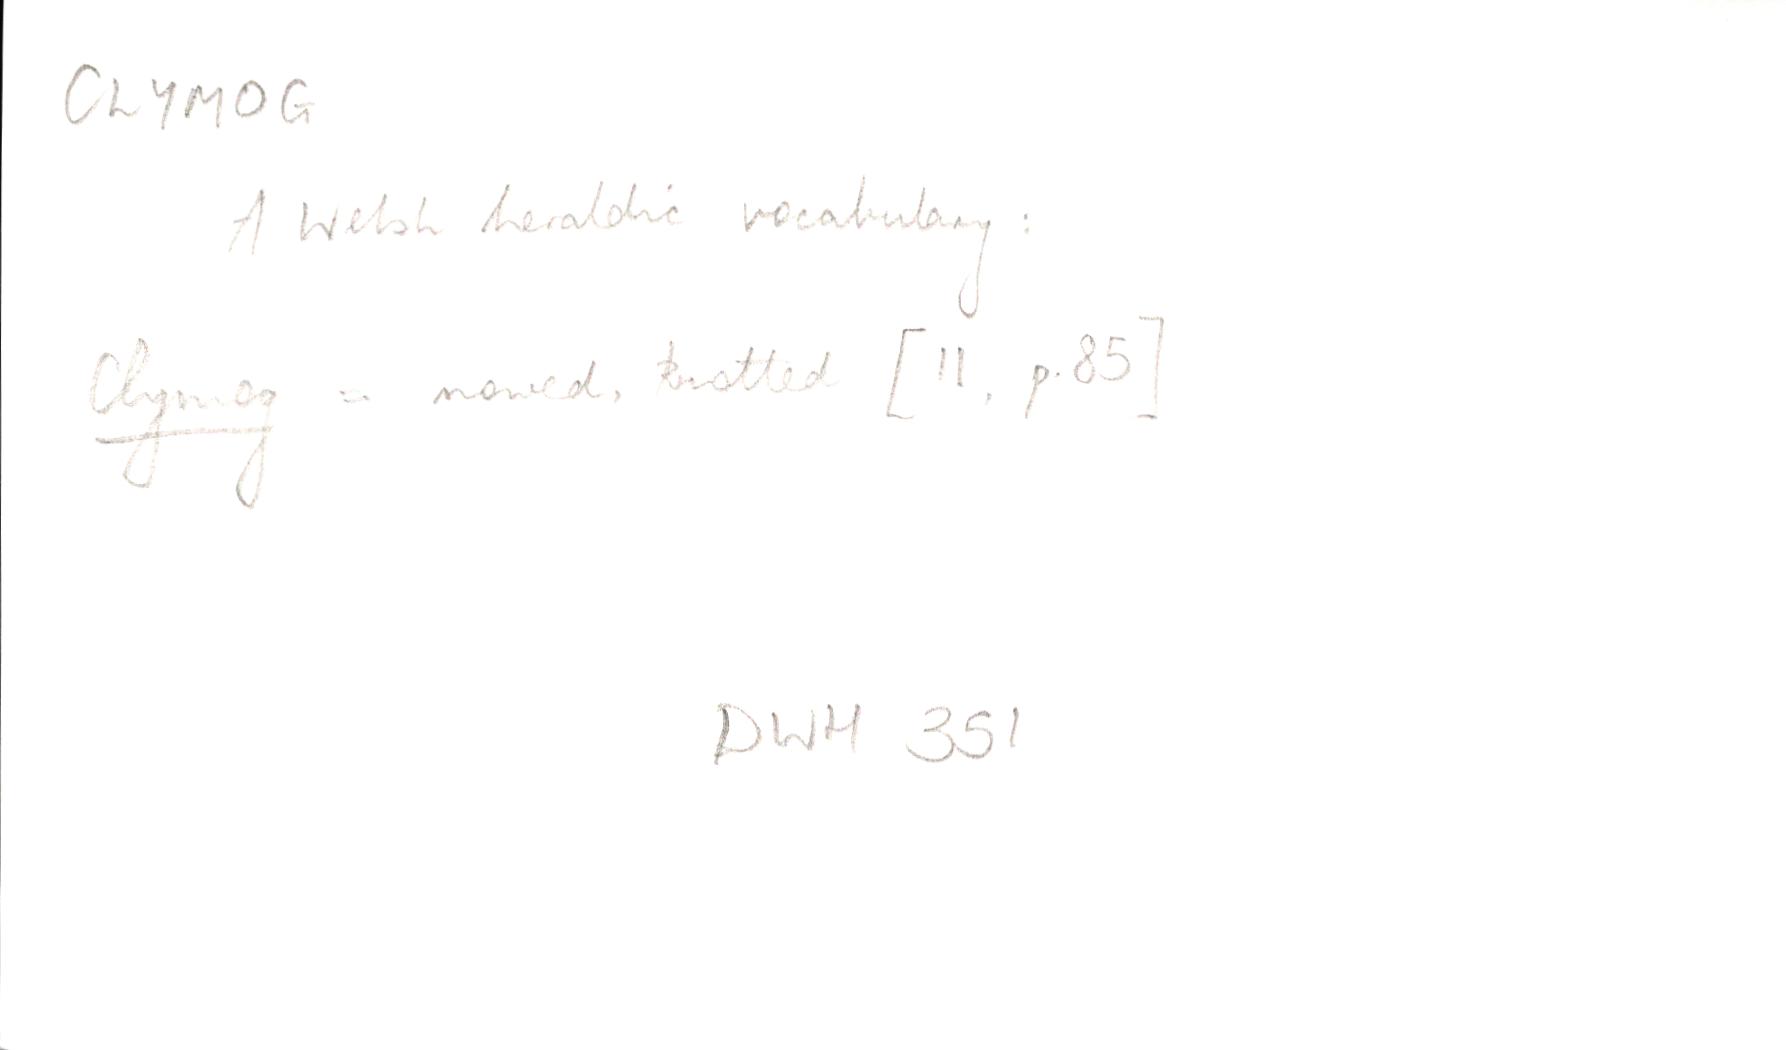 CLYMOG
A Welsh heraldic vocabulary:
Clymog = nowed, knotted [11, p. 85]
DWH 351